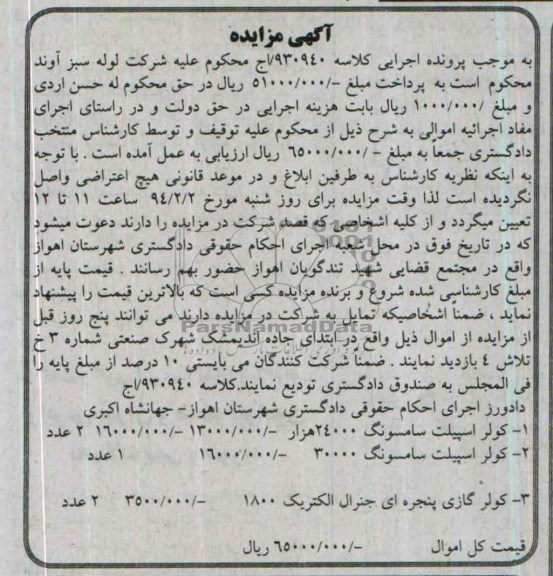 آگهی مزایده
به موجب پرونده اجرایی کلاسه ۹۳۰۹۴۰/اج محکوم علیه شرکت لوله سبز آوند
محکوم است به پرداخت مبلغ -/۵۱۰۰۰/۰۰۰ ریال در حق محکوم له حسن اردی
و مبلغ /۱۰۰۰/۰۰۰ ریال بابت هزینه اجرایی در حق دولت و در راستای اجرای
مفاد اجرائیه اموالی به شرح ذیل از محکوم علیه توقیف و توسط کارشناس منتخب
دادگستری جمعاً به مبلغ -/۶۵۰۰۰/۰۰۰ ریال ارزیابی به عمل آمده است . با توجه
به اینکه نظریه کارشناس به طرفین ابلاغ و در موعد قانونی هیچ اعتراضی واصل
نگردیده است لذا وقت مزایده برای روز شنبه مورخ ۹۴/۲/۲ ساعت ۱۱ تا ۱۲
تعیین میگردد و از کلیه اشخاصی که قصد شرکت در مزایده را دارند دعوت میشود
که در تاریخ فوق در محل شعبه اجرای احکام حقوقی دادگستری شهرستان اهواز
واقع در مجتمع قضایی شهید تندگویان اهواز حضور بهم رسانند . قیمت پایه از
مبلغ کارشناسی شده شروع و برنده مزایده کسی است که بالاترین قیمت را پیشنهاد
نماید ، ضمناً اشخاصیکه تمایل به شرکت در مزایده دارند می توانند پنج روز قبل
از مزایده از اموال ذیل واقع در ابتدای جاده اندیمشک شهرک صنعتی شماره ۳ خ
تلاش ۴ بازدید نمایند . ضمناً شرکت کنندگان می بایستی ۱۰ درصد از مبلغ پایه را
فی المجلس به صندوق دادگستری تودیع نمایند.کلاسه ۹۳۰۹۴۰/اج
دادورز اجرای احکام حقوقی دادگستری شهرستان اهواز- جهانشاه اکبری
۱- کولر اسپیلت سامسونگ ۲۴۰۰۰هزار -/۱۳۰۰۰/۰۰۰ -/۱۶۰۰۰/۰۰۰ ۲ عدد
۲- کولر اسپیلت سامسونگ ۳۰۰۰۰ -/۱۶۰۰۰/۰۰۰ ۱ عدد
۳- کولر گازی پنجره ای جنرال الکتریک ۱۸۰۰ -/۳۵۰۰/۰۰۰ ۲ عدد
قیمت کل اموال -/۶۵۰۰۰/۰۰۰ ریال
ParsNamadData